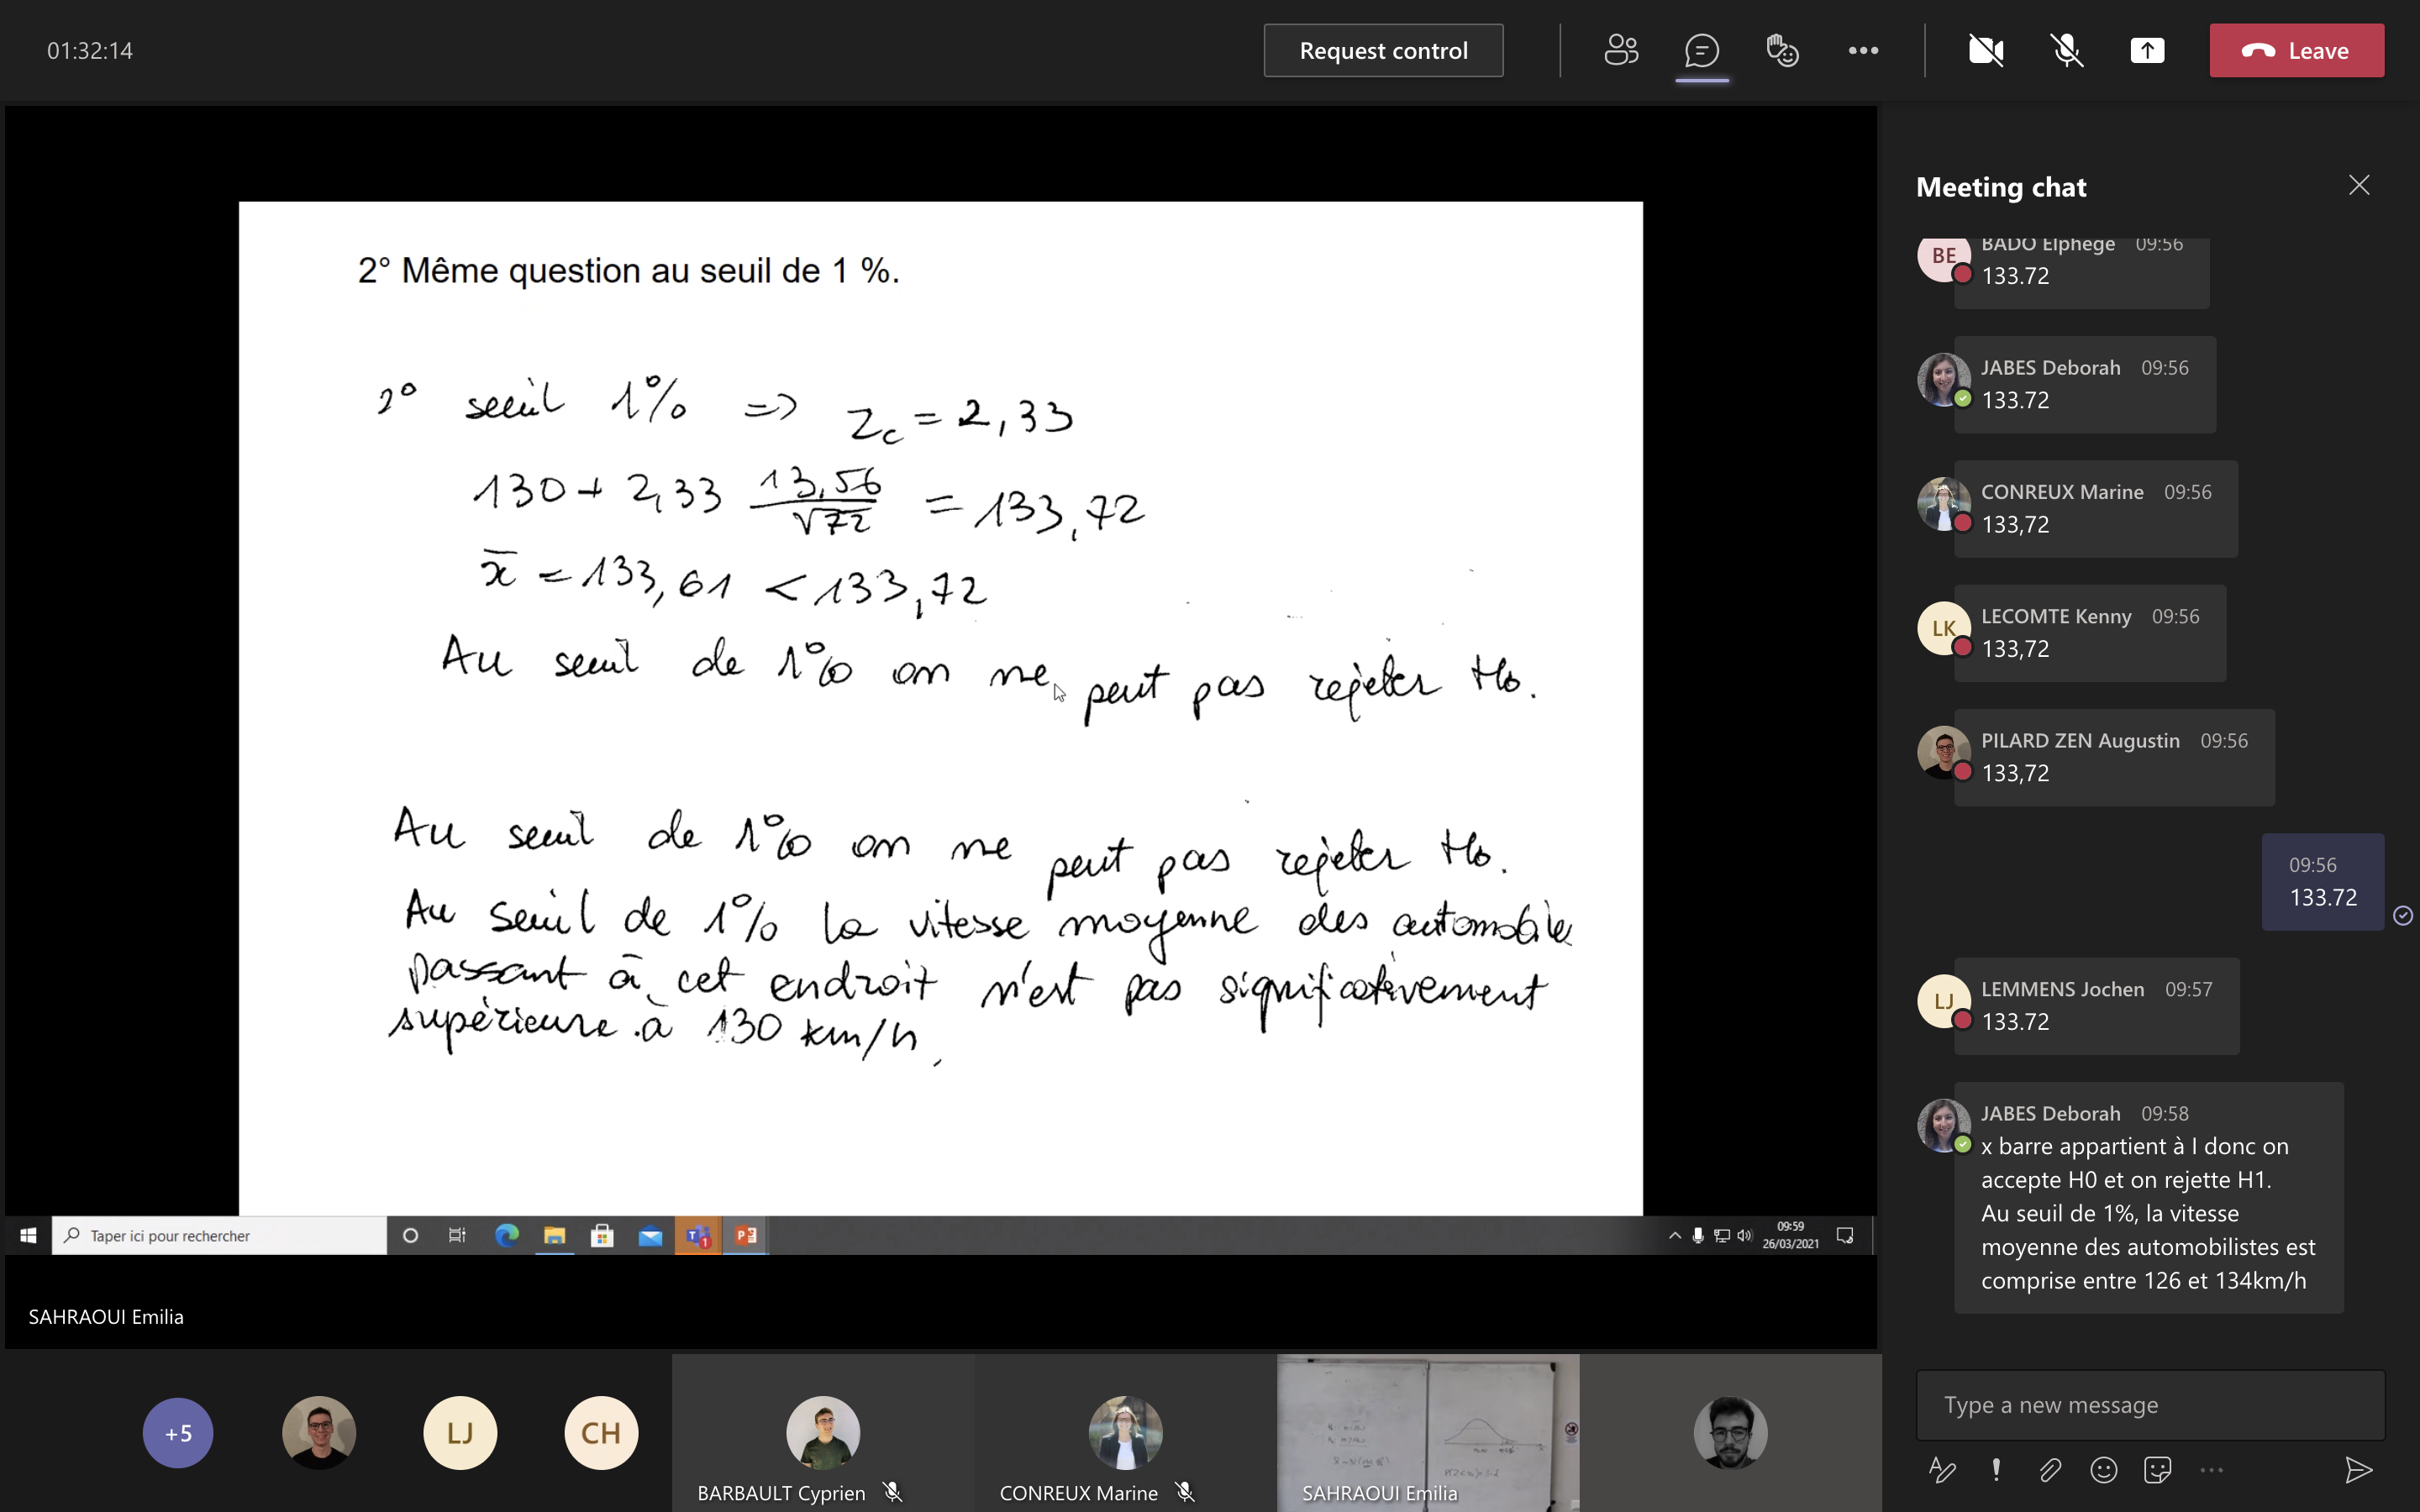 01:32:14
Request control
Leave
2° Même question au seuil de 1 %.
2° seuil 1% => Zc = 2,33
130 + 2,33 13,56 / √72 = 133,72
x̄ = 133,61 < 133,72
Au seuil de 1% on ne peut pas rejeter H0.
Au seuil de 1% on ne peut pas rejeter H0.
Au seuil de 1% la vitesse moyenne des automobile
passant à cet endroit n'est pas significativement
supérieure à 130 km/h.
Taper ici pour rechercher
1
09:59
26/03/2021
SAHRAOUI Emilia
+5
LJ
CH
BARBAULT Cyprien
CONREUX Marine
SAHRAOUI Emilia
Meeting chat
BE
BADO Elphege 09:56
133.72
JABES Deborah 09:56
133.72
CONREUX Marine 09:56
133,72
LK
LECOMTE Kenny 09:56
133,72
PILARD ZEN Augustin 09:56
133,72
09:56
133.72
LJ
LEMMENS Jochen 09:57
133.72
JABES Deborah 09:58
x barre appartient à I donc on
accepte H0 et on rejette H1.
Au seuil de 1%, la vitesse
moyenne des automobilistes est
comprise entre 126 et 134km/h
Type a new message